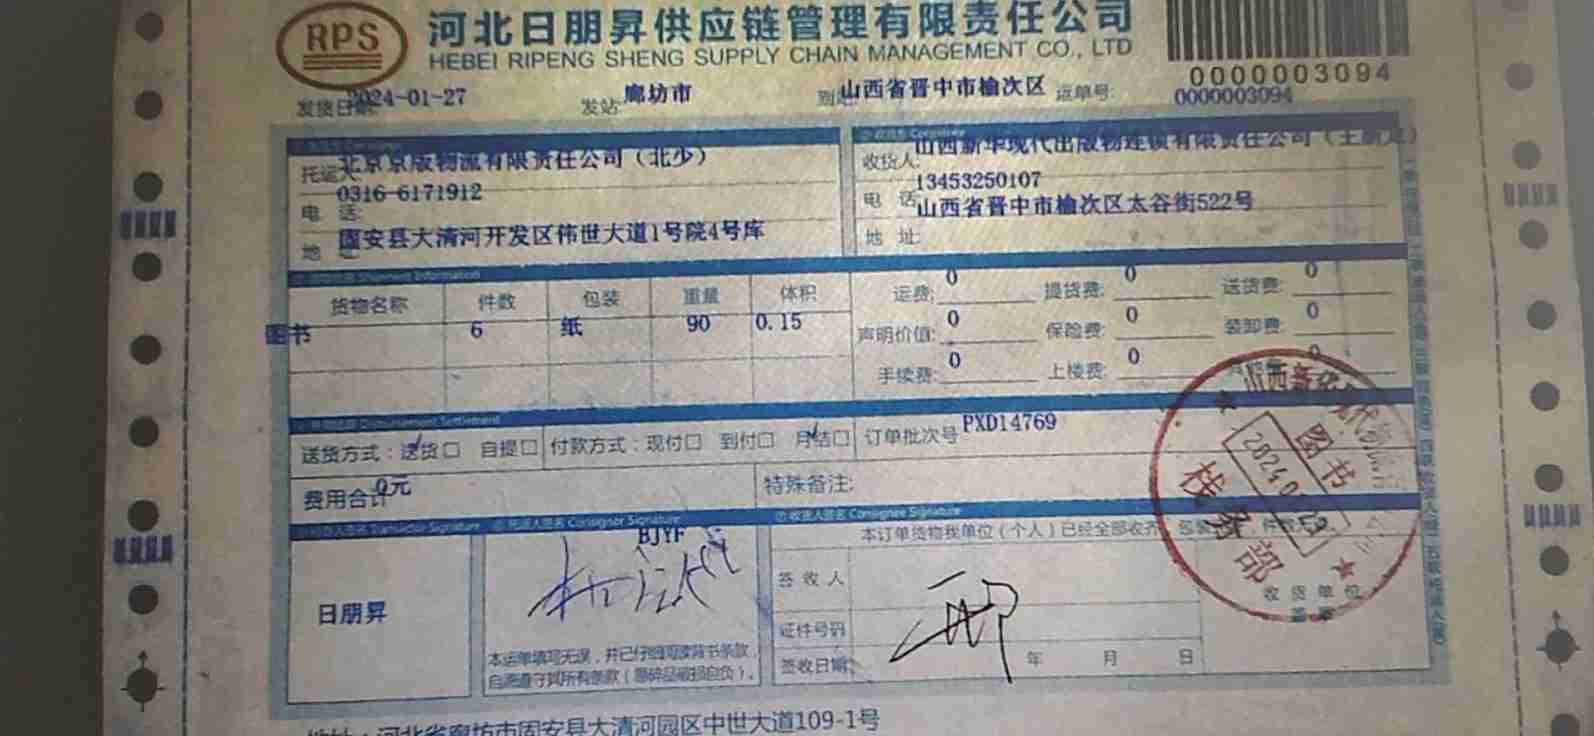 RPS
河北日朋昇供应链管理有限责任公司
HEBEI RIPENG SHENG SUPPLY CHAIN MANAGEMENT CO., LTD
0000003094
发货日期: 2024-01-27 发站 廊坊市 到站 山西省晋中市榆次区 运单号: 0000003094
托运人 北京京版物流有限责任公司（北少）
电 话: 0316-6171912
地 址 固安县大清河开发区伟世大道1号院4号库
收货人: 山西新华现代出版物连锁有限责任公司
电 话 13453250107
地 址: 山西省晋中市榆次区太谷街522号
Shipment Information
货物名称 件数 包装 重量 体积
图书 6 纸 90 0.15
运费: 0 提货费: 0 送货费: 0
声明价值: 0 保险费: 0 装卸费: 0
手续费: 0 上楼费: 0 0
Disbursement Settlement
送货方式：送货□ 自提□ 付款方式：现付□ 到付□ 月结□ 订单批次号 PXD14769
费用合计 0元 特殊备注:
Signature 托运人签名 Consignor Signature 收货人签名 Consignee Signature
日朋昇
BJYF
本运单填写无误，并已仔细阅读背书条款，
自愿遵守其所有条款（易碎品破损自负）。
本订单货物我单位（个人）已经全部收齐，包装
签 收 人
证件号码
签收日期: 年 月 日
收 货 单 位
盖 章
山西新华现代
图书
栈务部
地址：河北省廊坊市固安县大清河园区中世大道109-1号